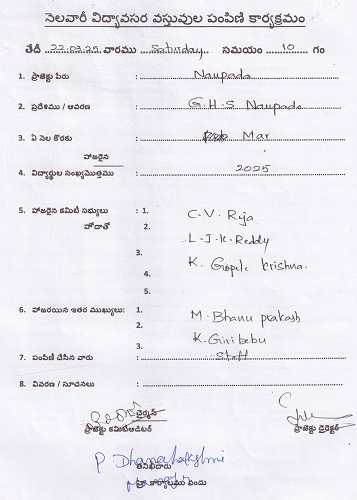 నెలవారీ విద్యావసర వస్తువుల పంపిణి కార్యక్రమం
తేదీ 22.03.25 వారము Saturday సమయం 10 గం
1. ప్రాజెక్టు పేరు : Naupada
2. ప్రదేశము / ఆవరణ : G.H.S Naupada
3. ఏ నెల కొరకు : Mar
హాజరైన
4. విద్యార్థుల సంఖ్యమొత్తము : 2025
5. హాజరైన కమిటీ సభ్యులు : 1. C.V. Raja
హోదాతో 2. L.J.K. Reddy
3. K. Gopala Krishna.
4.
5.
6. హాజరయిన ఇతర ముఖ్యులు: 1. M. Bhanu prakash
2. K. Giri babu
7. పంపిణి చేసిన వారు : Staff
8. వివరణ / సూచనలు :
ఛైర్మన్
ప్రాజెక్టు కమిటీఆడిటర్ ప్రాజెక్టు డైరెక్టర్
P Dhanalakshmi
తనిఖీదారు